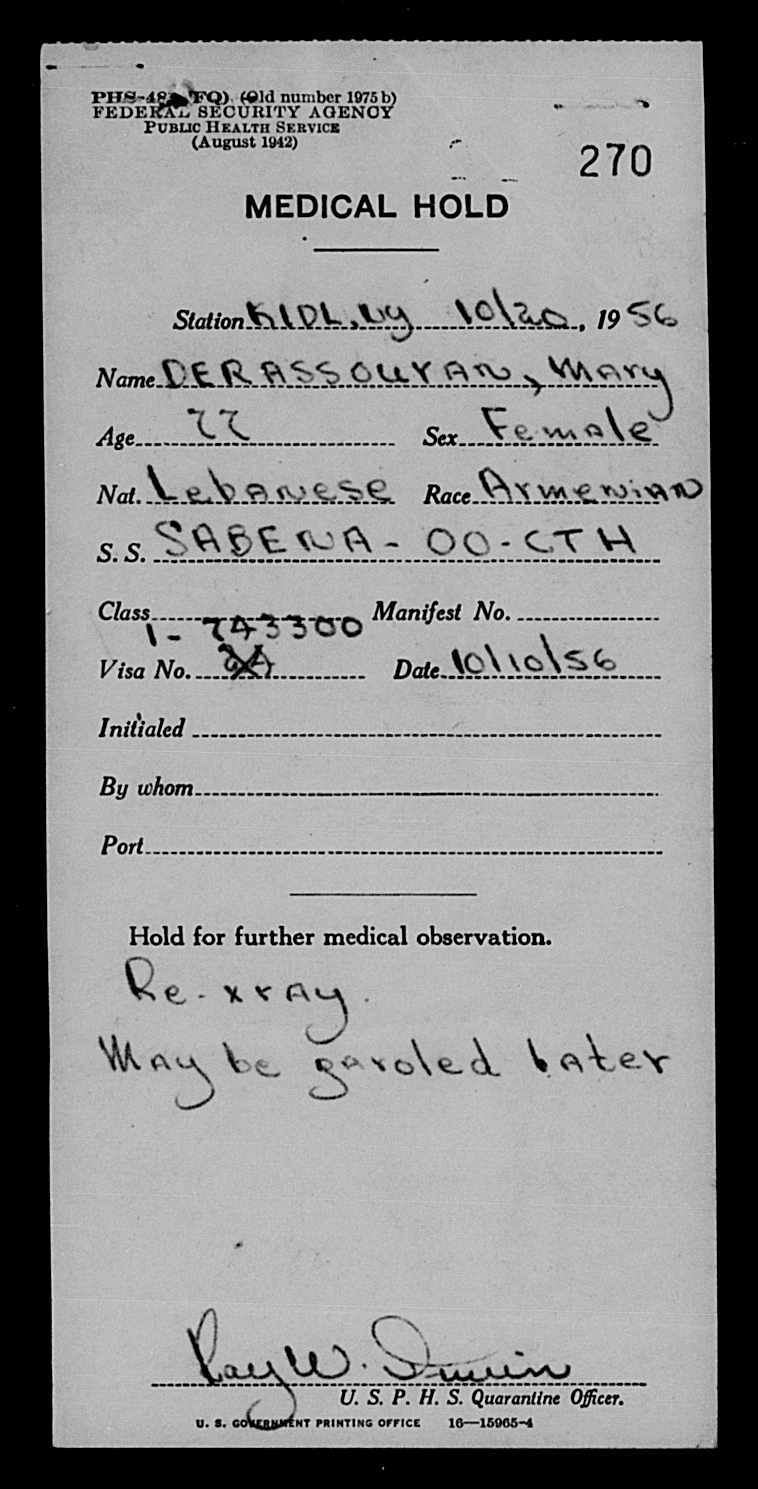 (Old number 1975 b)
FEDERAL SECURITY AGENCY
PUBLIC HEALTH SERVICE
(August 1942)
270
MEDICAL HOLD
Station 10/20, 1956
Name DERASSOUYAN, Mary
Age 77 Sex Female
Nat. Lebanese Race Armenian
S. S. SABENA - OO-CTH
Class Manifest No.
1-743300
Visa No. Date 10/10/56
Initialed
By whom
Port
Hold for further medical observation.
Re-xray.
May be paroled later
Ray W.
U. S. P. H. S. Quarantine Officer.
U. S. GOVERNMENT PRINTING OFFICE 16—15965-4